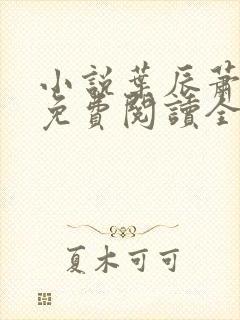 小說葉辰蕭
免費閱讀全
夏木可可